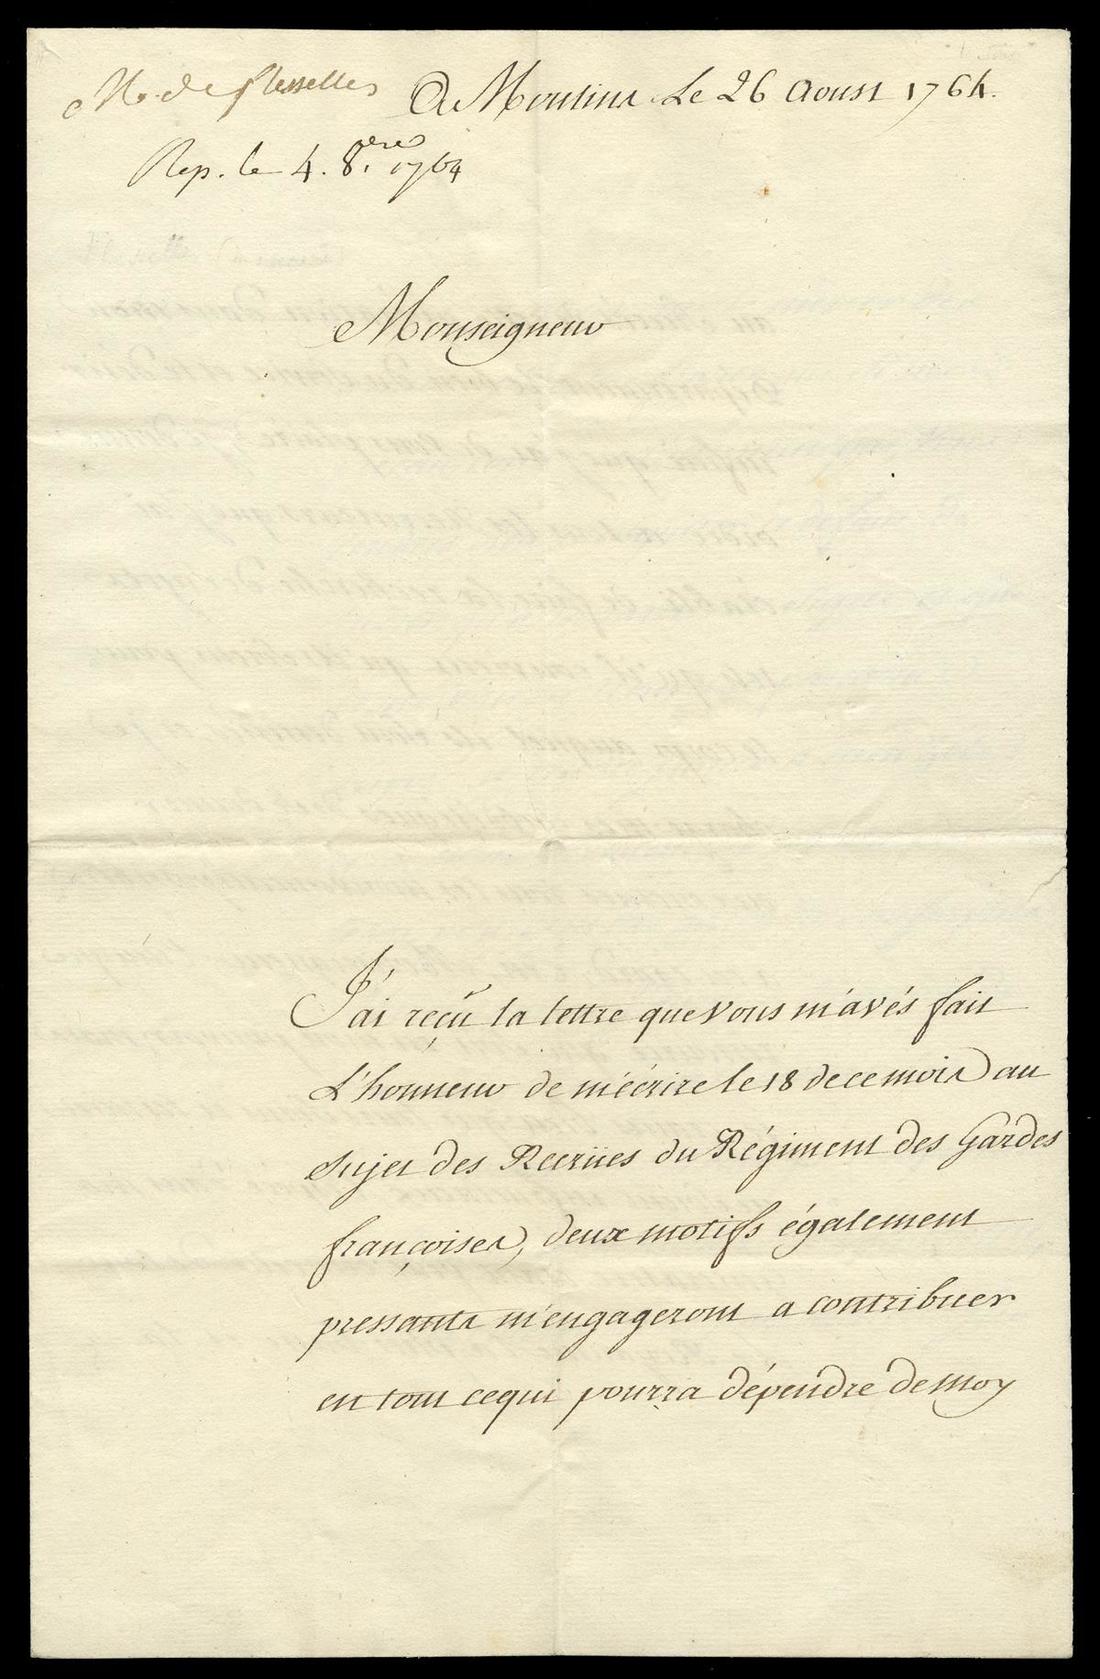 M. de flesselles
A Moulins Le 26 Aoust 1764.
Rep. le 4. 8.bre 1764
Monseigneur
J'ai reçu la lettre que vous m'avés fait
L'honneur de m'écrire le 18 de ce mois au
Sujet des Recrües du Régiment des Gardes
françoises, deux motifs également
pressants m'engageront a contribuer
en tout cequi pourra dépendre de moy